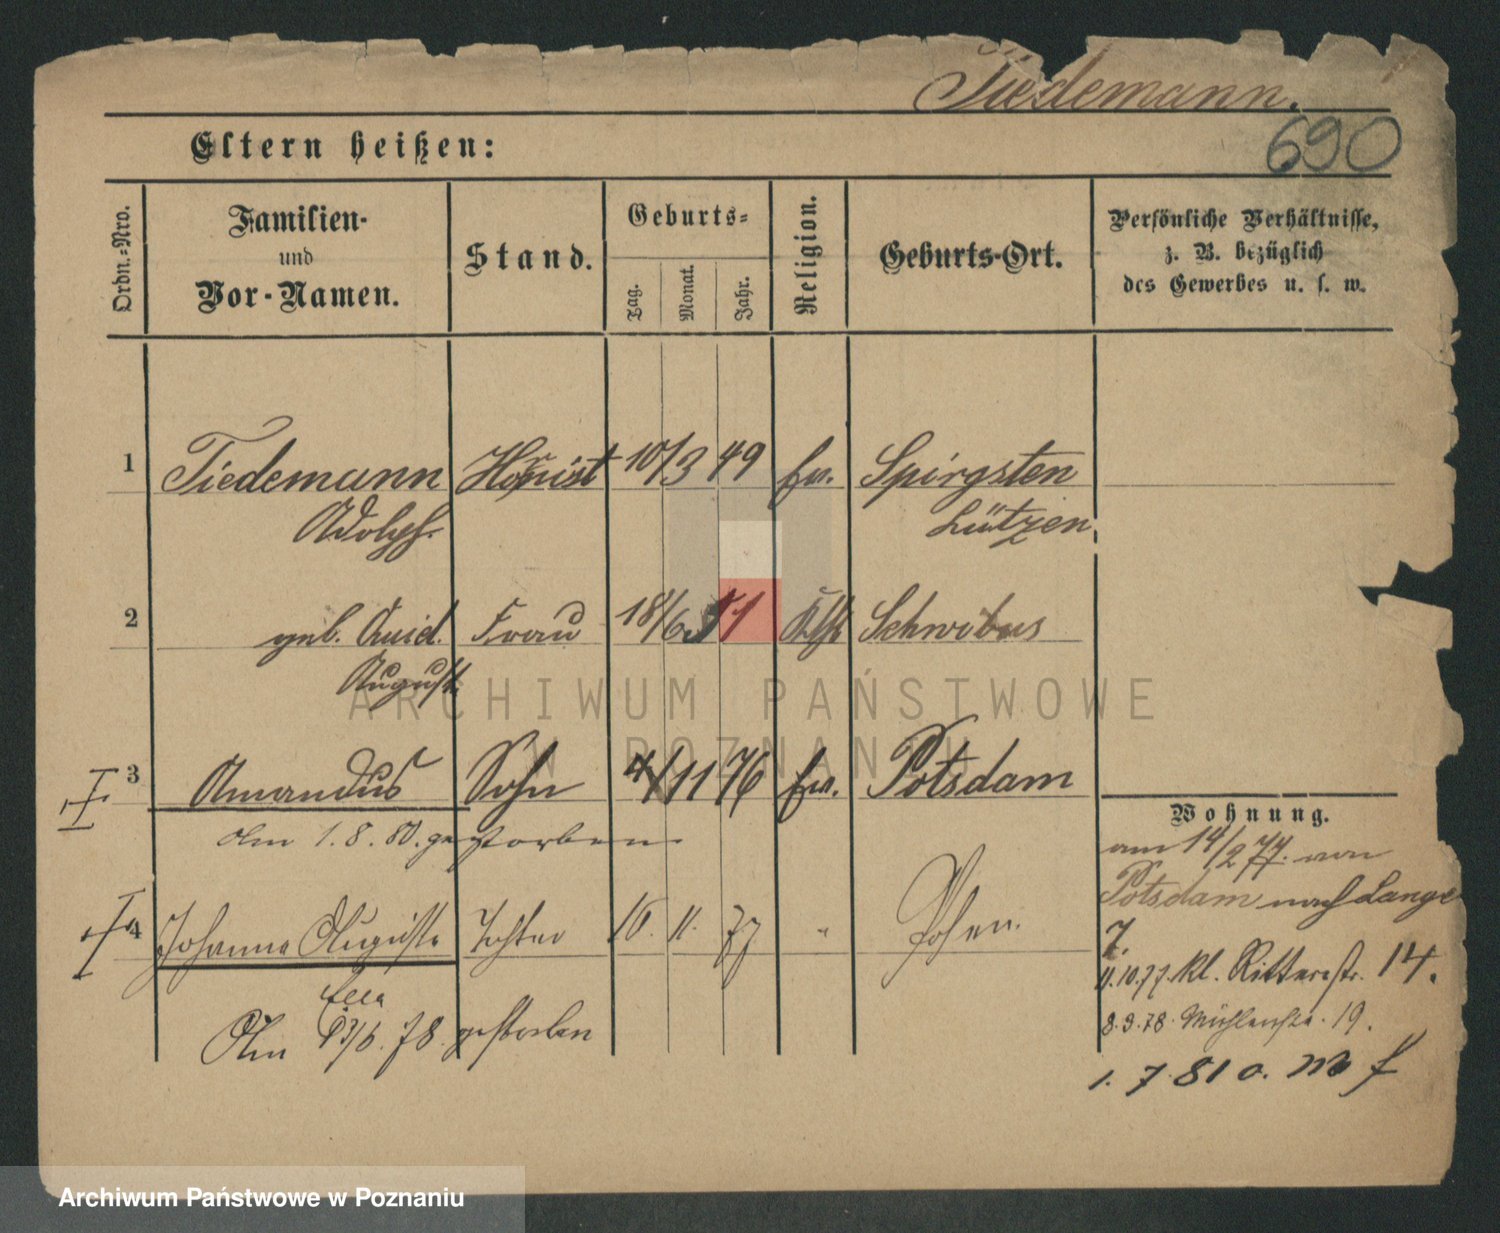 Tiedemann.
690
Eltern heißen:
Ordn.-Nro.
Familien-
und
Vor-Namen.
Stand.
Geburts-
Tag.
Monat.
Jahr.
Religion.
Geburts-Ort.
Persönliche Verhältnisse,
z. B. bezüglich
des Gewerbes u. s. w.
1 Tiedemann Hornist 10/3 49 ev. Spirgsten
Adolph. Lützen
2 geb. Quid. Frau 18/6 51 Kth Schwibus
August
ARCHIWUM PAŃSTWOWE
W POZNANIU
3 Amandus Sohn 4/11 76 ev. Potsdam
Am 1.8.80. gestorben
4 Johanna Auguste Tochter 16. 11. 77 " Posen.
Ella
Am 23/6. 78. gestorben
Wohnung.
am 14/2 77. von
Potsdam nach Lange
7.
11.10.77. kl. Ritterstr. 14.
8.9.78. Mühlenstr. 19.
1. 7 81 o. m f
Archiwum Państwowe w Poznaniu